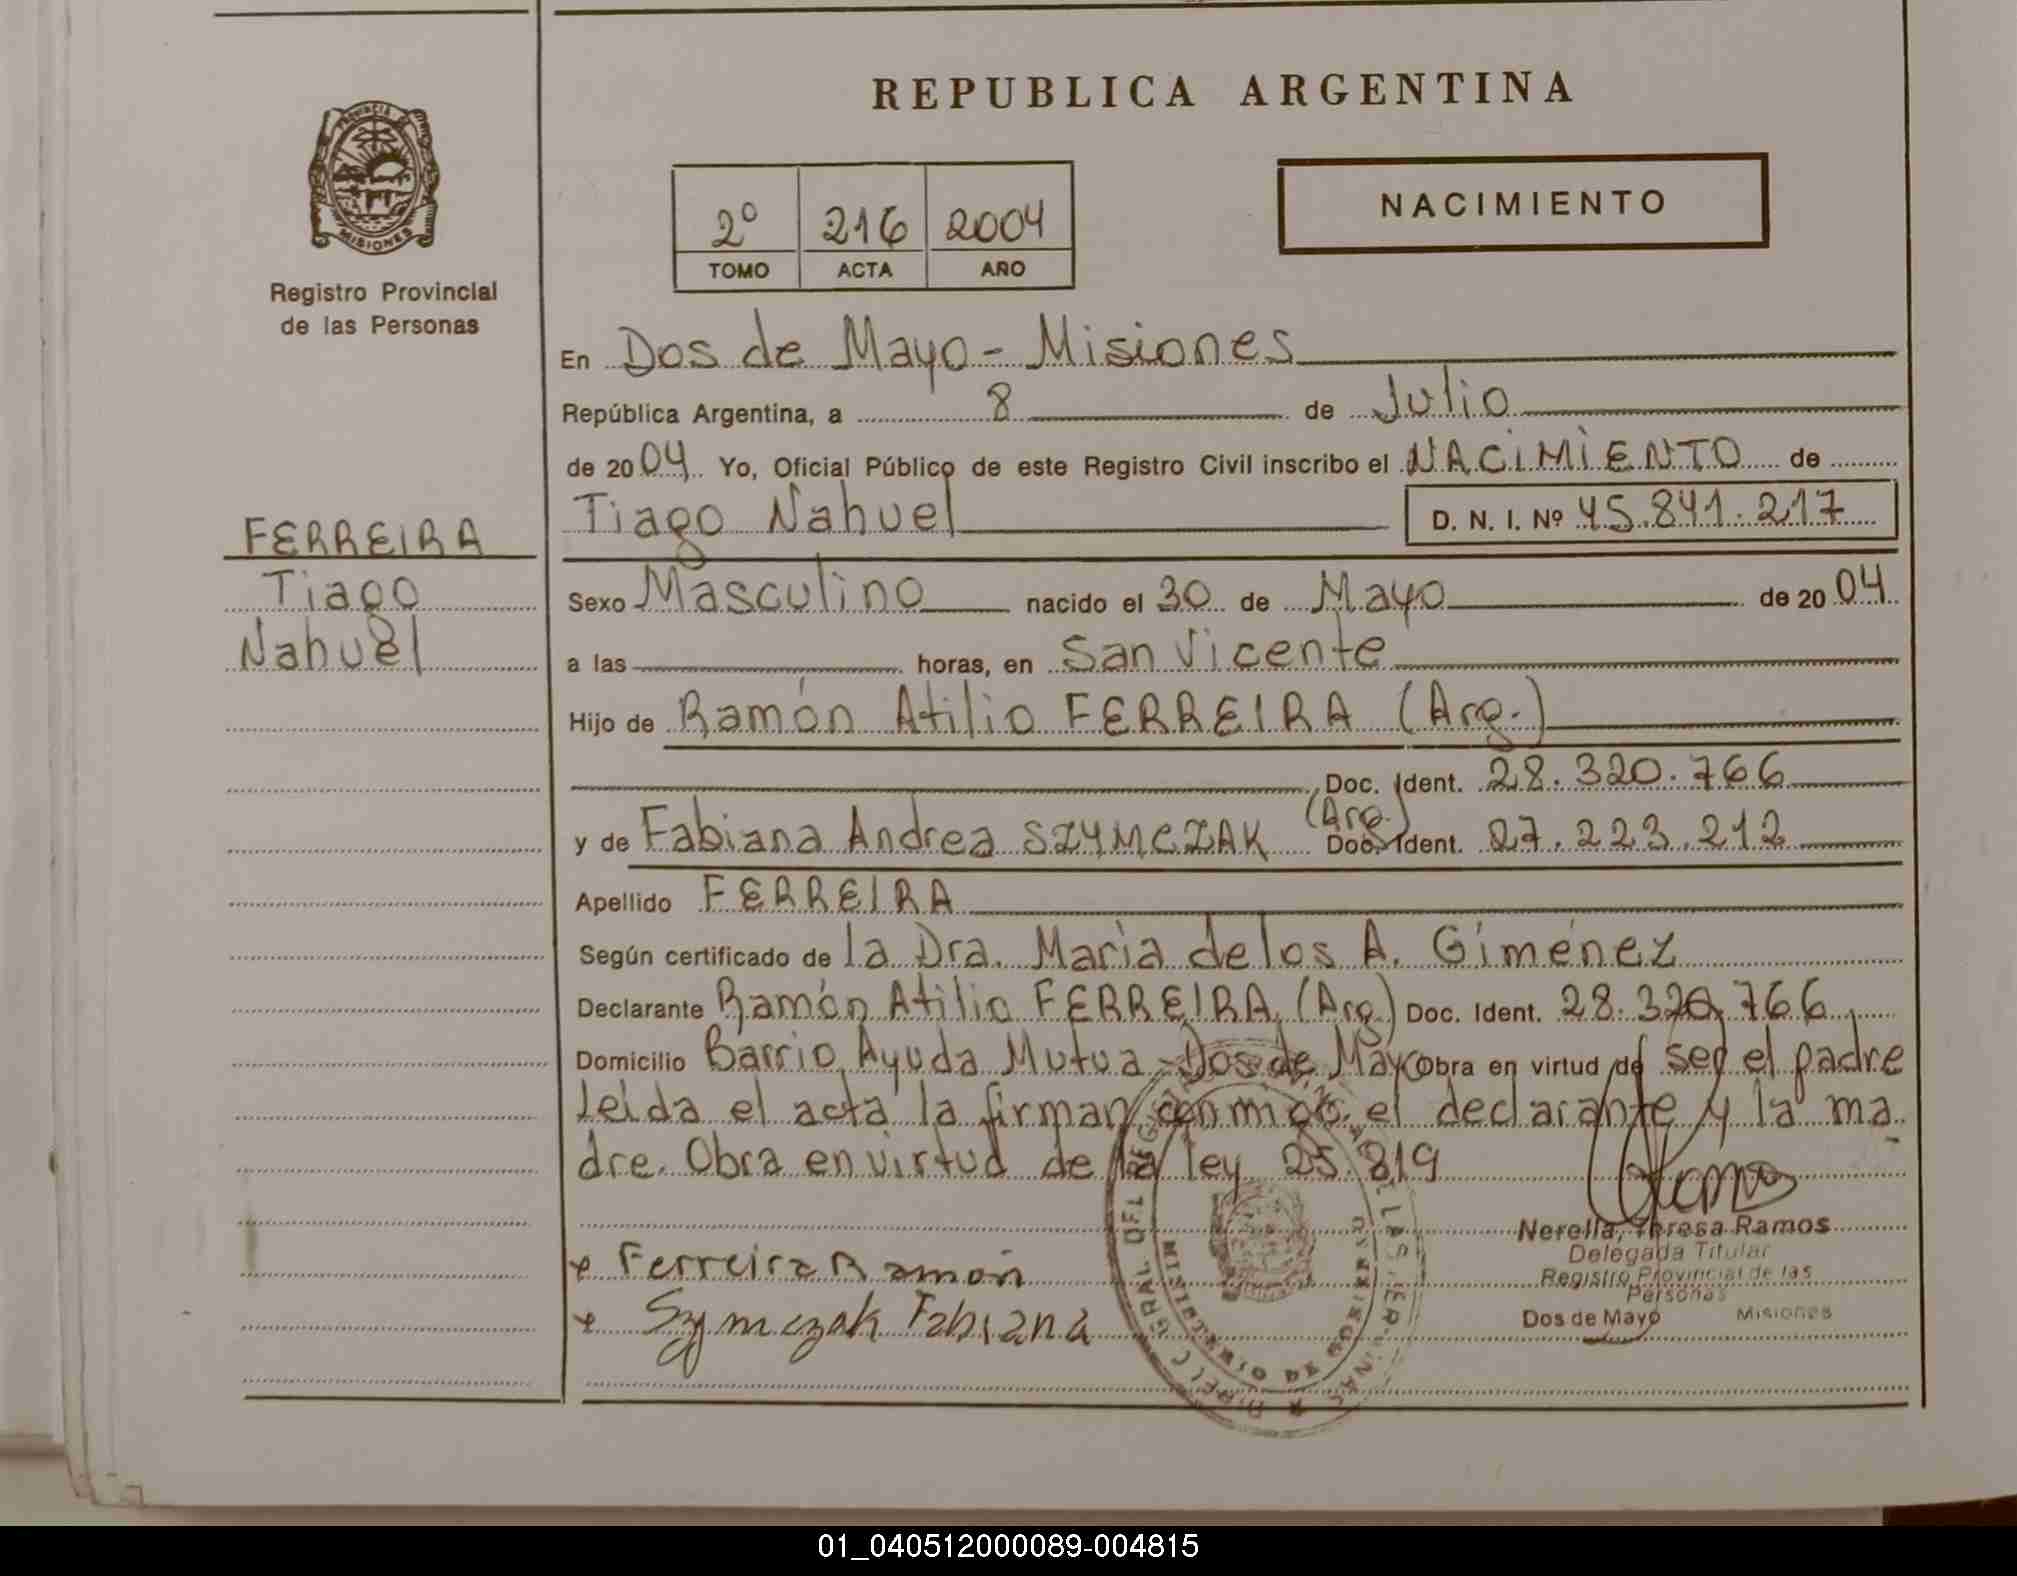 REPUBLICA ARGENTINA
PROVINCIA DE
MISIONES
Registro Provincial
de las Personas
2º 216 2004
TOMO ACTA AÑO
NACIMIENTO
En Dos de Mayo - Misiones
República Argentina, a 8 de Julio
de 2004 Yo, Oficial Público de este Registro Civil inscribo el NACIMIENTO de
Tiago Nahuel D. N. I. Nº 45.841.217
FERREIRA
Tiago
Nahuel
Sexo Masculino nacido el 30 de Mayo de 2004
a las horas, en San Vicente
Hijo de Ramón Atilio FERREIRA (Arg.)
Doc. Ident. 28.320.766
y de Fabiana Andrea SZYMCZAK (Arg.) Doc. Ident. 27.223.212
Apellido FERREIRA
Según certificado de la Dra. María de los A. Giménez
Declarante Ramón Atilio FERREIRA (Arg.) Doc. Ident. 28.320.766
Domicilio Barrio Ayuda Mutua - Dos de Mayo Obra en virtud de ser el padre
Leída el acta la firman conmigo el declarante y la ma
dre. Obra en virtud de la ley 25.819
Nerella, Teresa Ramos
Delegada Titular
Registro Provincial de las
Personas
Dos de Mayo Misiones
x Ferreira Ramón
x Szymczak Fabiana
MINISTERIO DE GOBIERNO
01_040512000089-004815